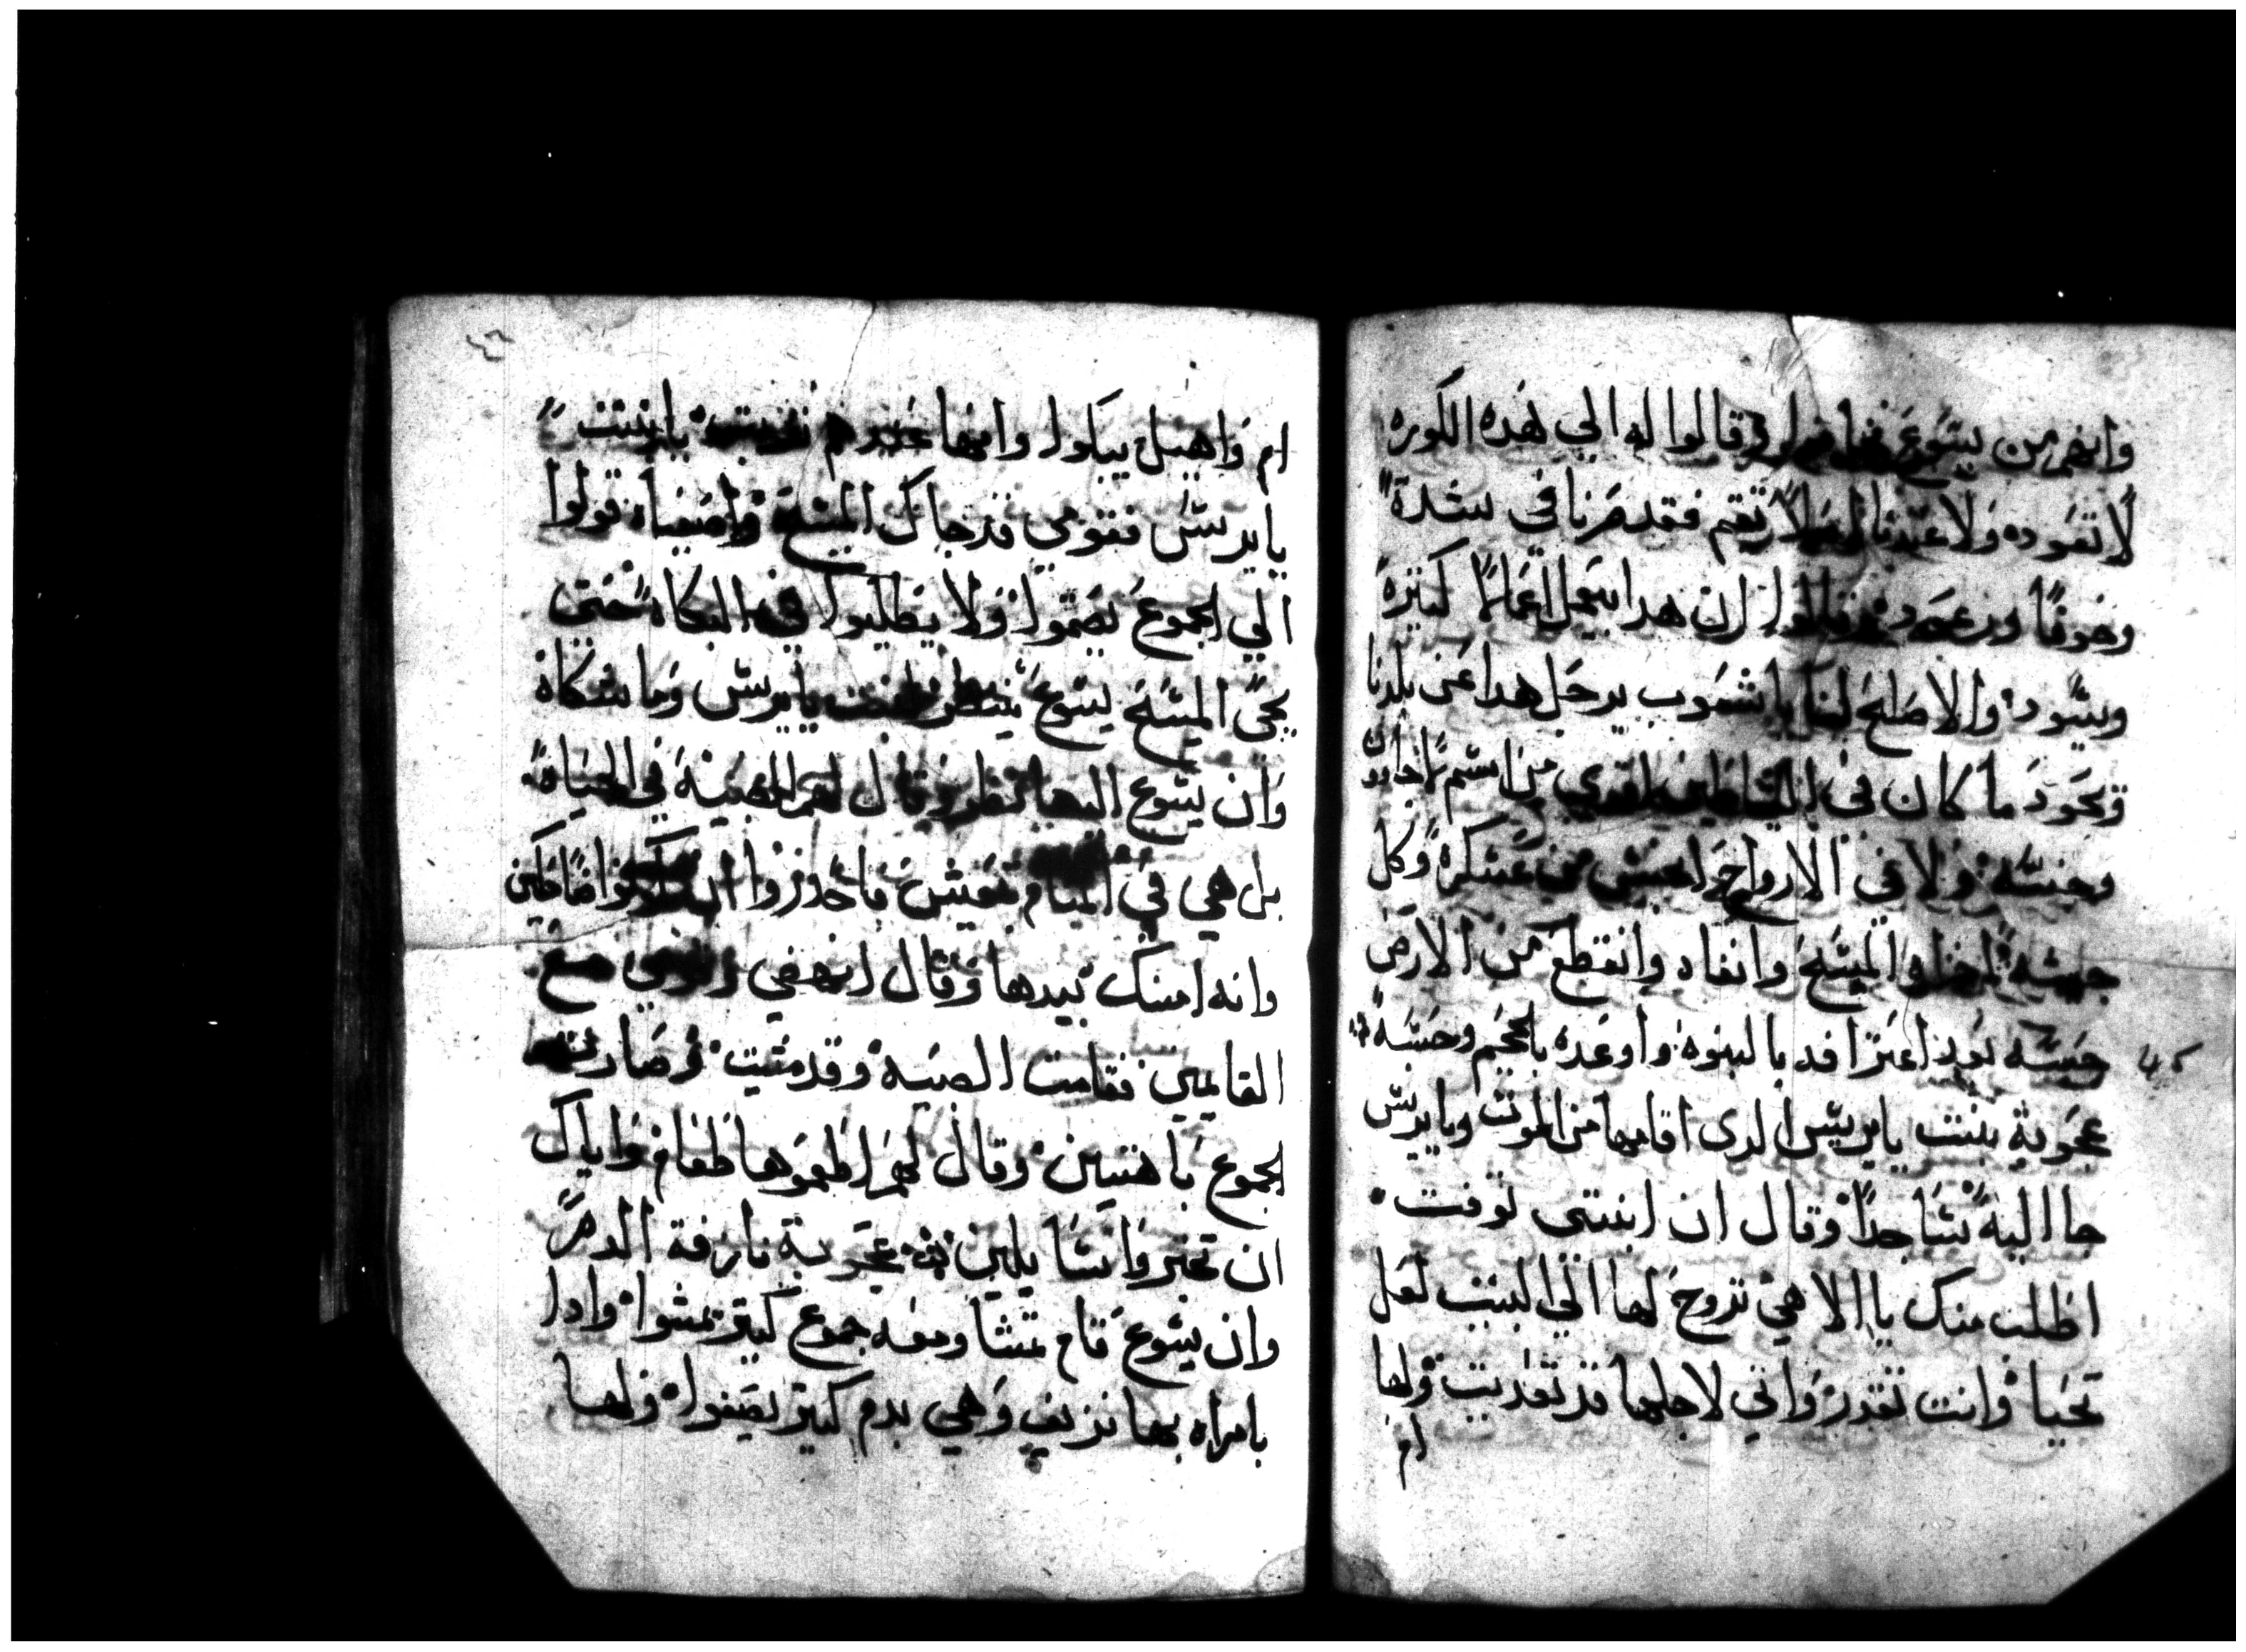 وانهم من يسوع خافوا وقالوا له الي هده الكوره
لا تعوده ولا عندنا تقيم فقد صرنا في شدة
وخوفا ورعده وقالوا ان هدا يعمل اعمالا كتيرة
ويسود والاصلح لنا يا شعوب يرحل هدا عن بلدنا
ويعود ما كان في الشياطين اقوي من اسم لاجاوون
وجنسه ولا في الارواح اجنس من عسكره وكل
جيشه اخزاه المسيح وانفاه وانقطع من الارض
جنسه بعد اعترافه بالبنوه واوعده بالجحيم وحبسه
٤٥
عجوبة بنت يايرس الدي اقامها من الموت ويايرس
جا اليه ساجدا وقال ان ابنتي توفت
اطلب منك يا الاهي تروح لها الي البيت لعل
تحيا وانت تقدر واني لاجلها قد تعديت ولها
ام
٤٦
ام واهل يبكوا وانها عندهم يا بنت
يايرس فقومي قد جاك المسيح واصفياه قولوا
الي الجموع يصمتوا ولا يطلبوا في البكاء حتي
يجي المسيح يسوع ينظر بنت يايرس وما شكاة
وان يسوع اليها نظر وقال لهم الصبية في الحياة
بل هي في المنام تعيش فاحدروا ان تكونوا ضاحكين
وانه امسك بيدها وقال انهضي مع
القايمين فقامت الصبية وقد مشيت وصارت
الجموع باهتين وقال لهم اطعموها طعام واياك
ان تخبروا انسا يلين عجوبة نازفة الدم
وان يسوع قام تمشا ومعه جموع كتير يمشوا وادا
بامراه بها نزيف وهي بدم كتير يصفوا ولها